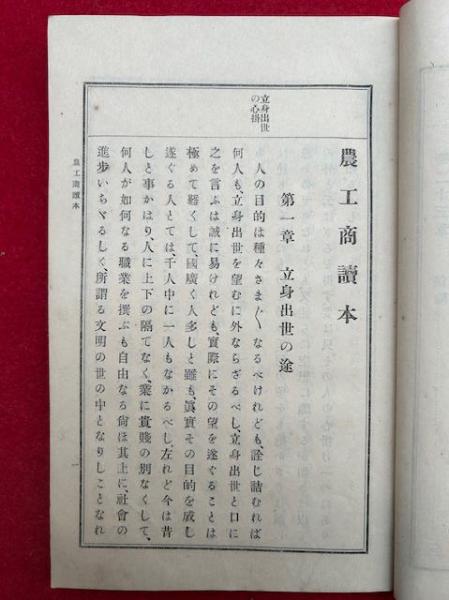 農工商讀本
立身出世
の心掛
第一章 立身出世の途
人の目的は種々さま〴〵なるべけれども、詮じ詰むれば
何人も、立身出世を望むに外ならざるべし、立身出世と口に
之を言ふは誠に易けれども、實際にその望を遂ぐることは
極めて難くして、國廣く人多しと雖も、眞實その目的を成し
遂ぐる人とては、千人中に一人もなかるべし、左れど今は昔
しと事かはり、人に上下の隔てなく、業に貴賤の別なくして、
何人が如何なる職業を撰ぶも自由なる尙ほ其上に、社會の
進歩いちゞるしく、所謂る文明の世の中となりしことなれ
農工商讀本
一